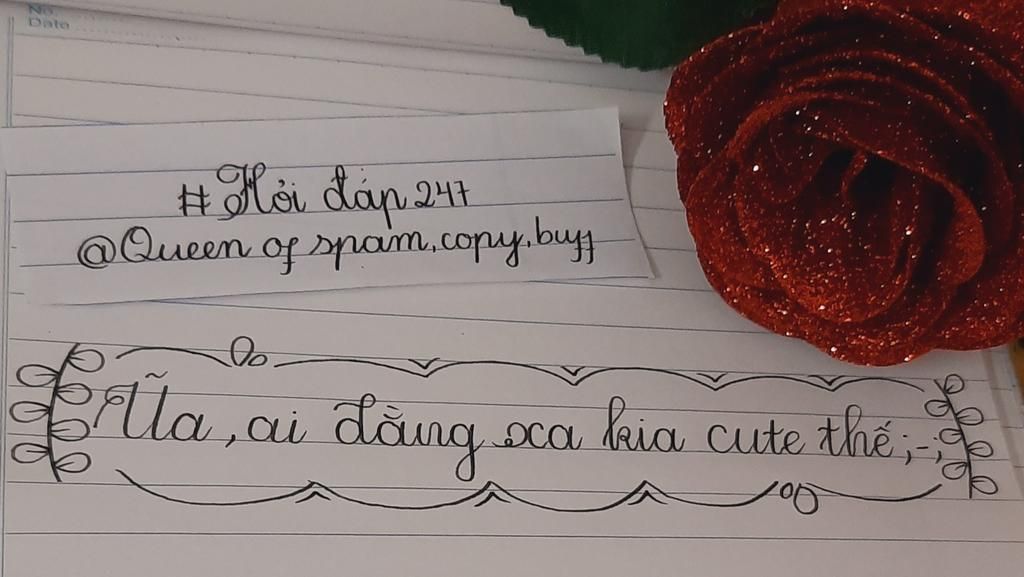 No.
Date
#Hỏi đáp 247
@Queen of spam, copy, buff
Ũa, ai đằng xa kia cute thế;-;